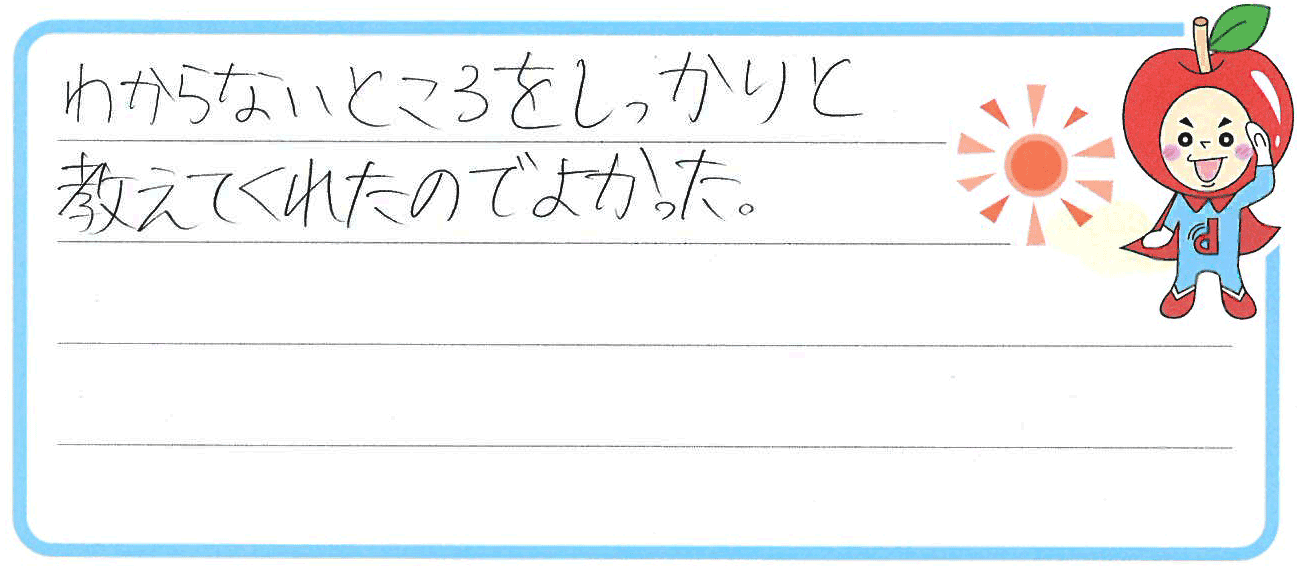 わからないところをしっかりと
教えてくれたのでよかった。